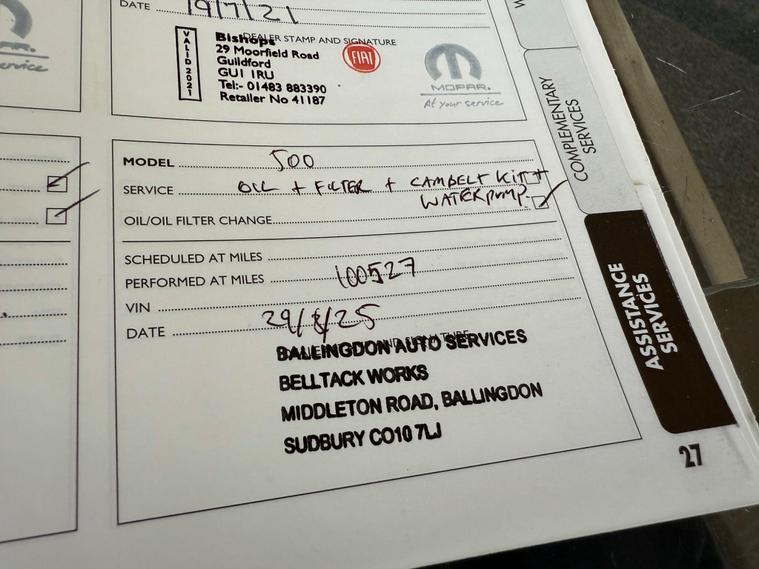 DATE 19/7/21
DEALER STAMP AND SIGNATURE
VALID 2021
Bishops
29 Moorfield Road
Guildford
GU1 1RU
Tel:- 01483 883390
Retailer No 41187
FIAT
MOPAR.
At your service
MOPAR.
service
COMPLEMENTARY
SERVICES
MODEL 500
SERVICE OIL + FILTER + CAMBELT KIT +
WATERPUMP.
OIL/OIL FILTER CHANGE
SCHEDULED AT MILES
PERFORMED AT MILES 100527
VIN
DATE 29/8/25
BALLINGDON AUTO SERVICES
BELLTACK WORKS
MIDDLETON ROAD, BALLINGDON
SUDBURY CO10 7LJ
ASSISTANCE
SERVICES
27